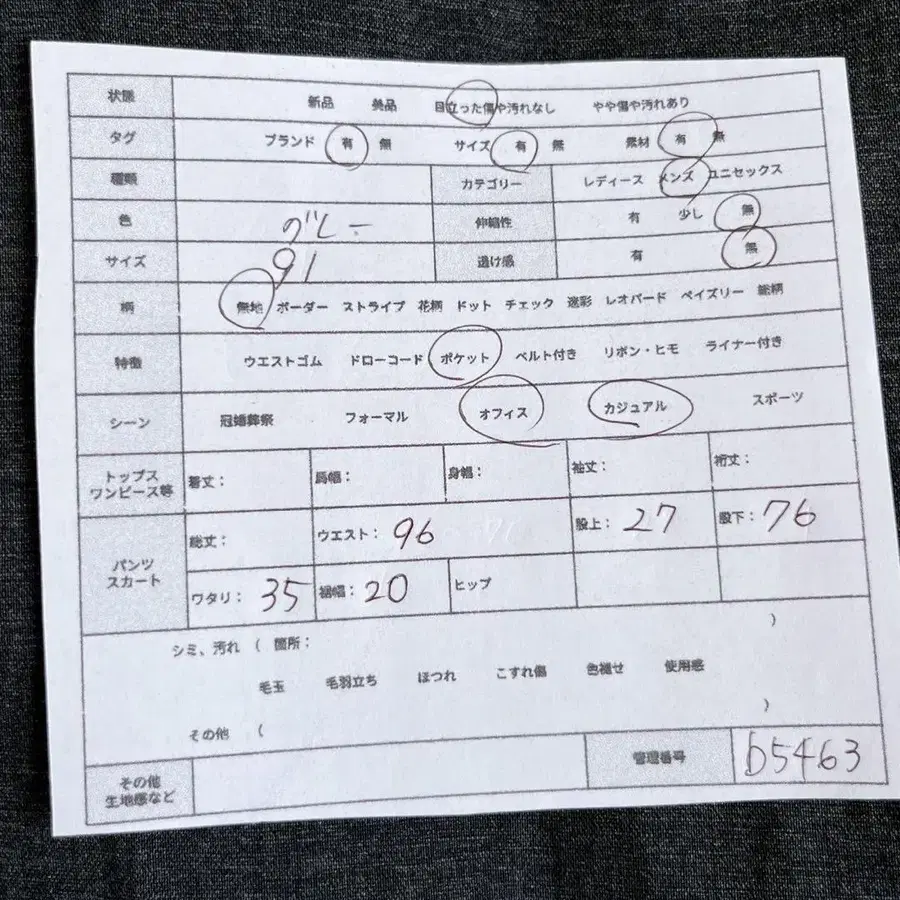 状態 新品 美品 目立った傷や汚れなし やや傷や汚れあり
タグ ブランド 有 無 サイズ 有 無 素材 有 無
種類 カテゴリー レディース メンズ ユニセックス
色 グレー 伸縮性 有 少し 無
サイズ 91 透け感 有 無
柄 無地 ボーダー ストライプ 花柄 ドット チェック 迷彩 レオパード ペイズリー 総柄
特徴 ウエストゴム ドローコード ポケット ベルト付き リボン・ヒモ ライナー付き
シーン 冠婚葬祭 フォーマル オフィス カジュアル スポーツ
トップス
ワンピース等 着丈: 肩幅: 身幅: 袖丈: 裄丈:
パンツ
スカート 総丈: ウエスト: 96 股上: 27 股下: 76
ワタリ: 35 裾幅: 20 ヒップ
シミ、汚れ ( 箇所: )
毛玉 毛羽立ち ほつれ こすれ傷 色褪せ 使用感
その他 ( )
その他
生地感など 管理番号 b5463